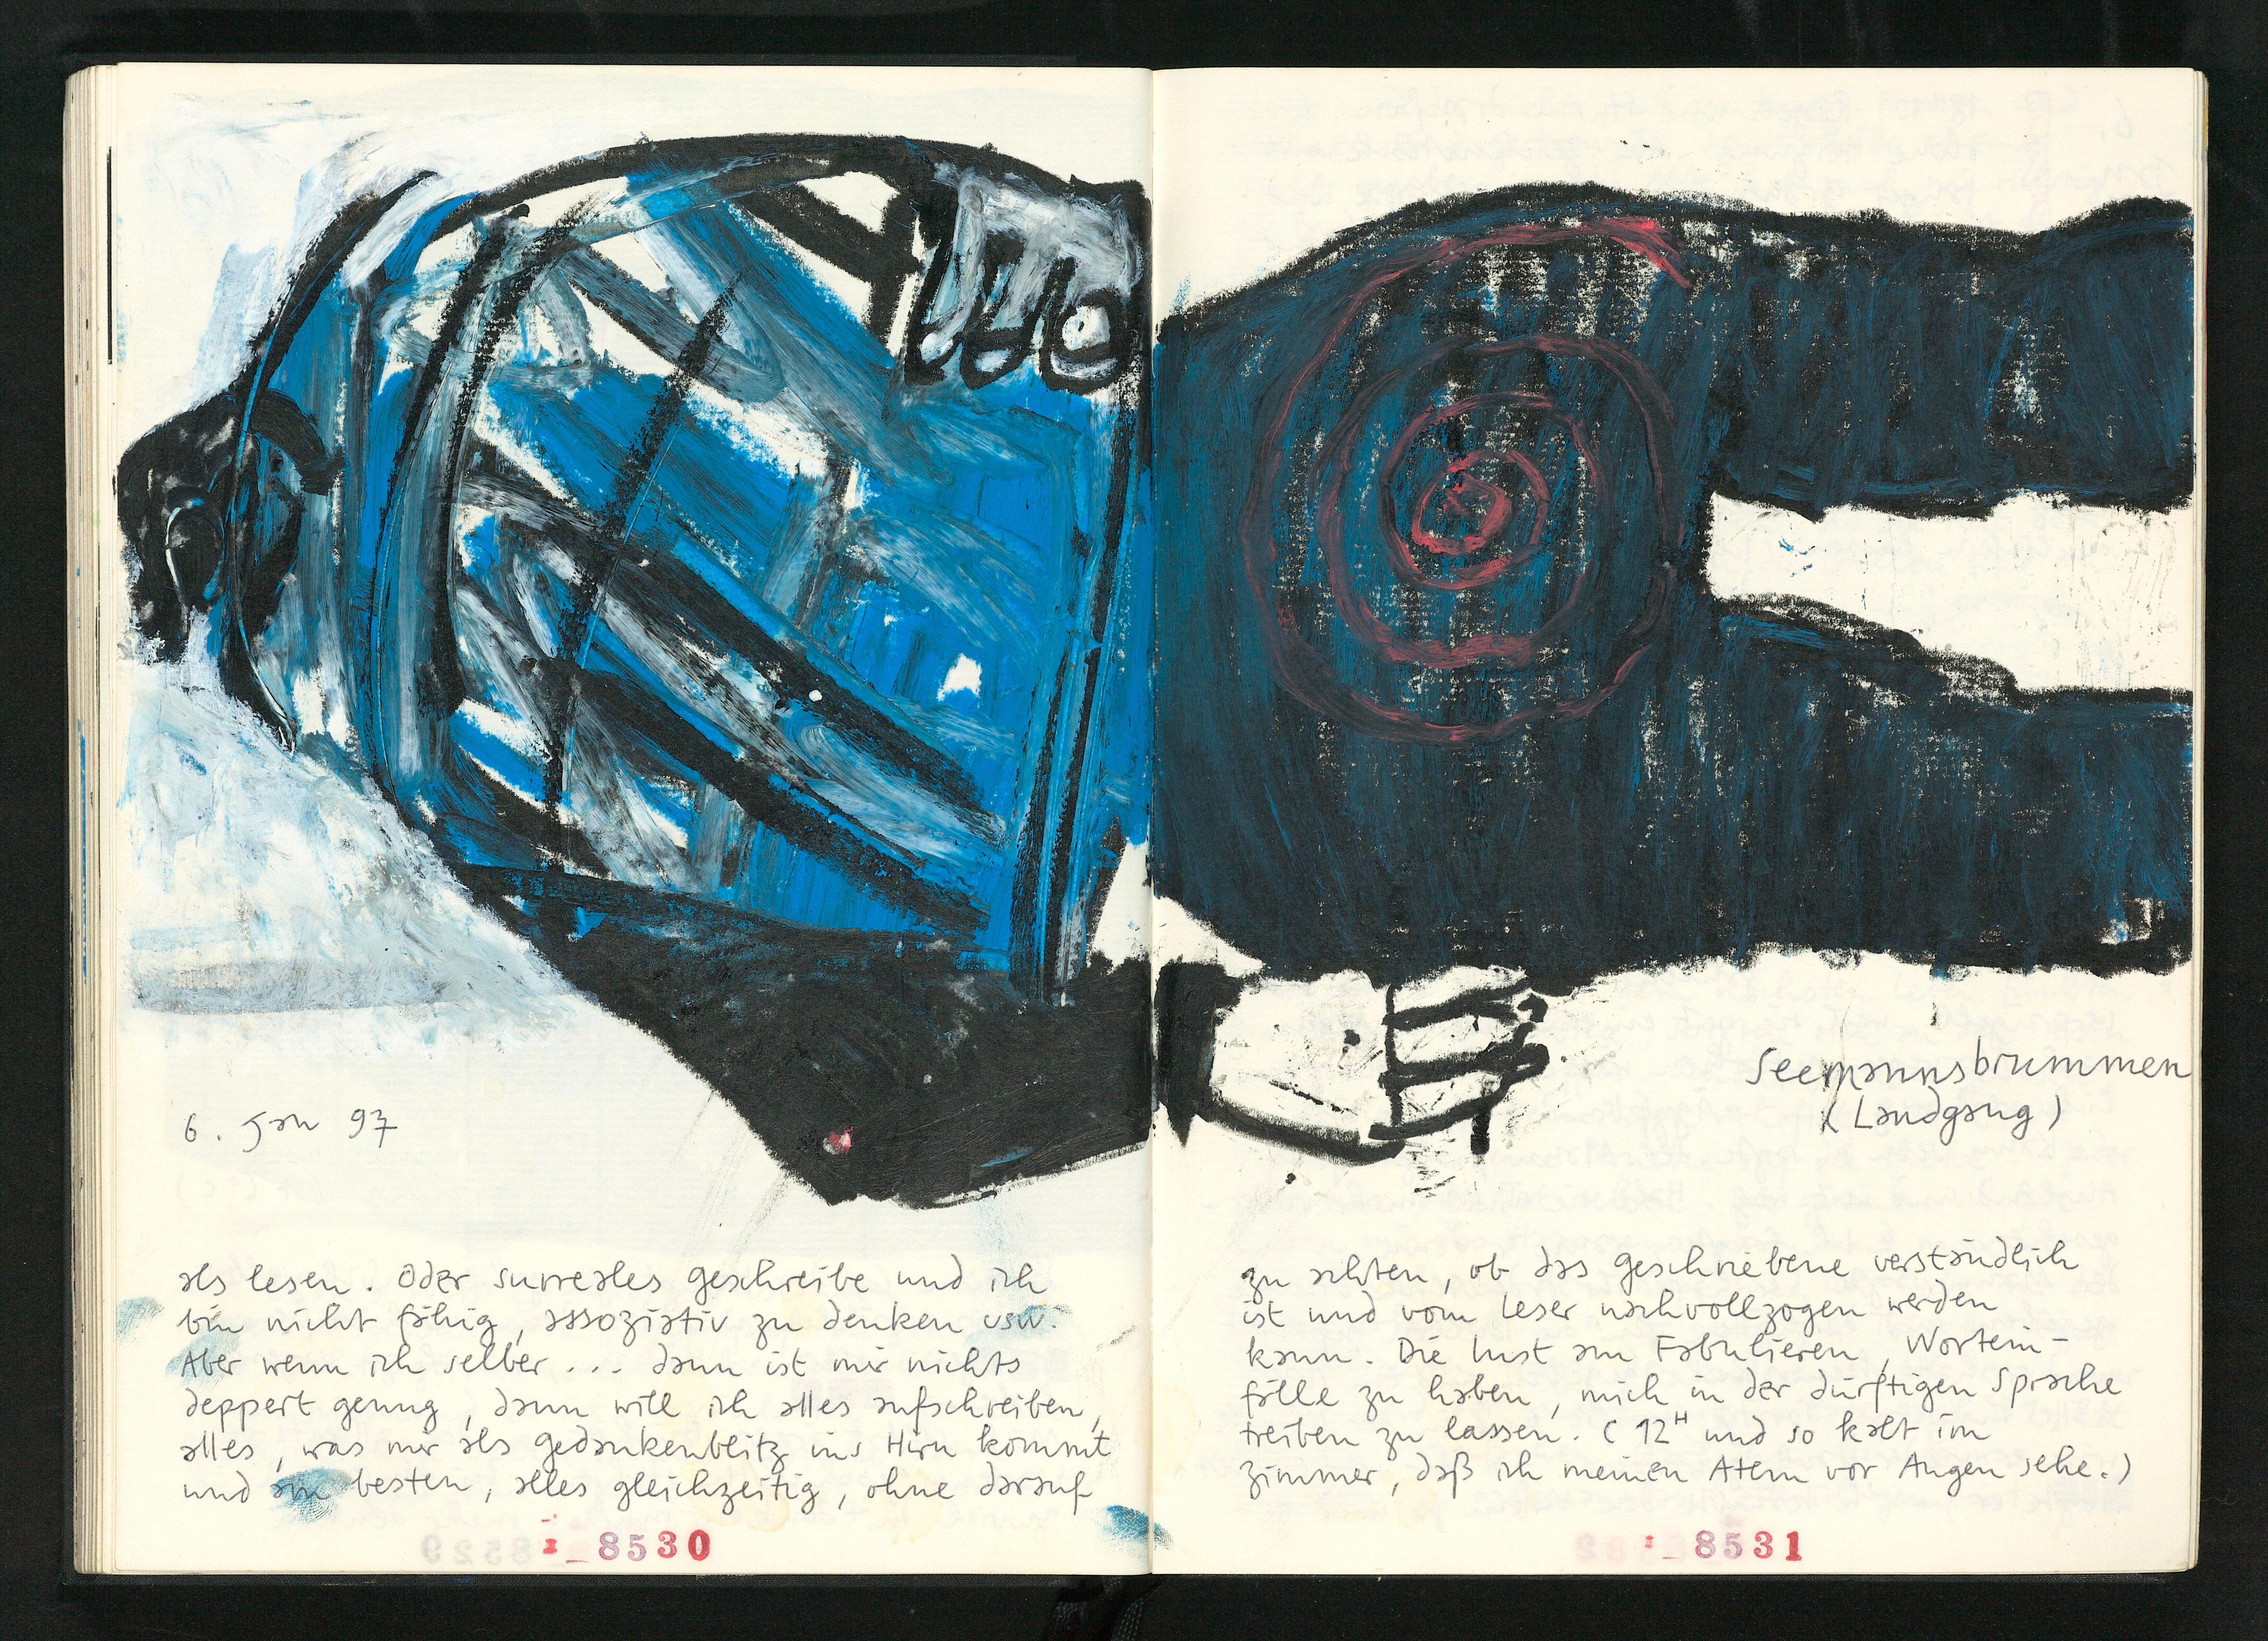 6. Jan 97
als lesen. Oder surreales geschreibe und ich
bin nicht fähig, assoziativ zu denken usw.
Aber wenn ich selber ... dann ist mir nichts
deppert genug, dann will ich alles aufschreiben,
alles, was mir als gedankenblitz ins Hirn kommt
und am besten, alles gleichzeitig, ohne darauf
8530
Seemannsbrummen
(Landgang)
zu achten, ob das geschriebene verständlich
ist und vom Leser nachvollzogen werden
kann. Die Lust am Fabulieren, Wortein-
fälle zu haben, mich in der dürftigen Sprache
treiben zu lassen. (12H und so kalt im
zimmer, daß ich meinen Atem vor Augen sehe.)
8531